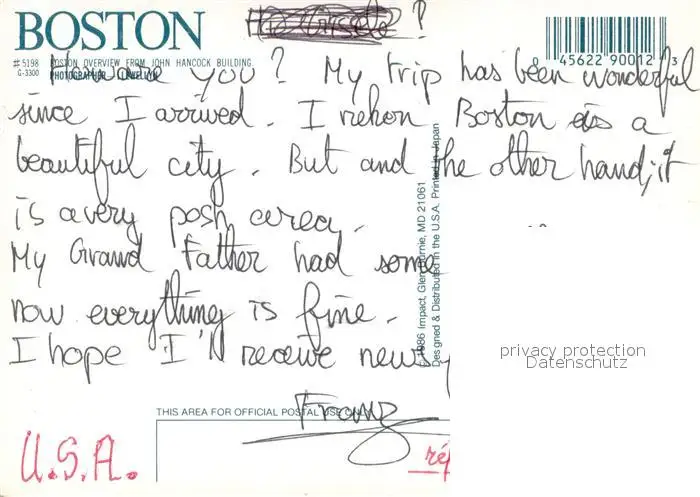 BOSTON
# 5198 BOSTON OVERVIEW FROM JOHN HANCOCK BUILDING.
G-3300 PHOTOGRAPHER LLEWELLYN
?
0 45622 90012 3
How are you? My trip has been wonderful
since I arrived. I rekon Boston is a
beautiful city. But and the other hand, it
is a very posh area.
My Grand Father had some
now everything is fine.
I hope I'll receive news
Franz
©1986 Impact, Glen Burnie, MD 21061
Designed & Distributed in the U.S.A. Printed in Japan
privacy protection
Datenschutz
THIS AREA FOR OFFICIAL POSTAL USE ONLY
U.S.A.
ré